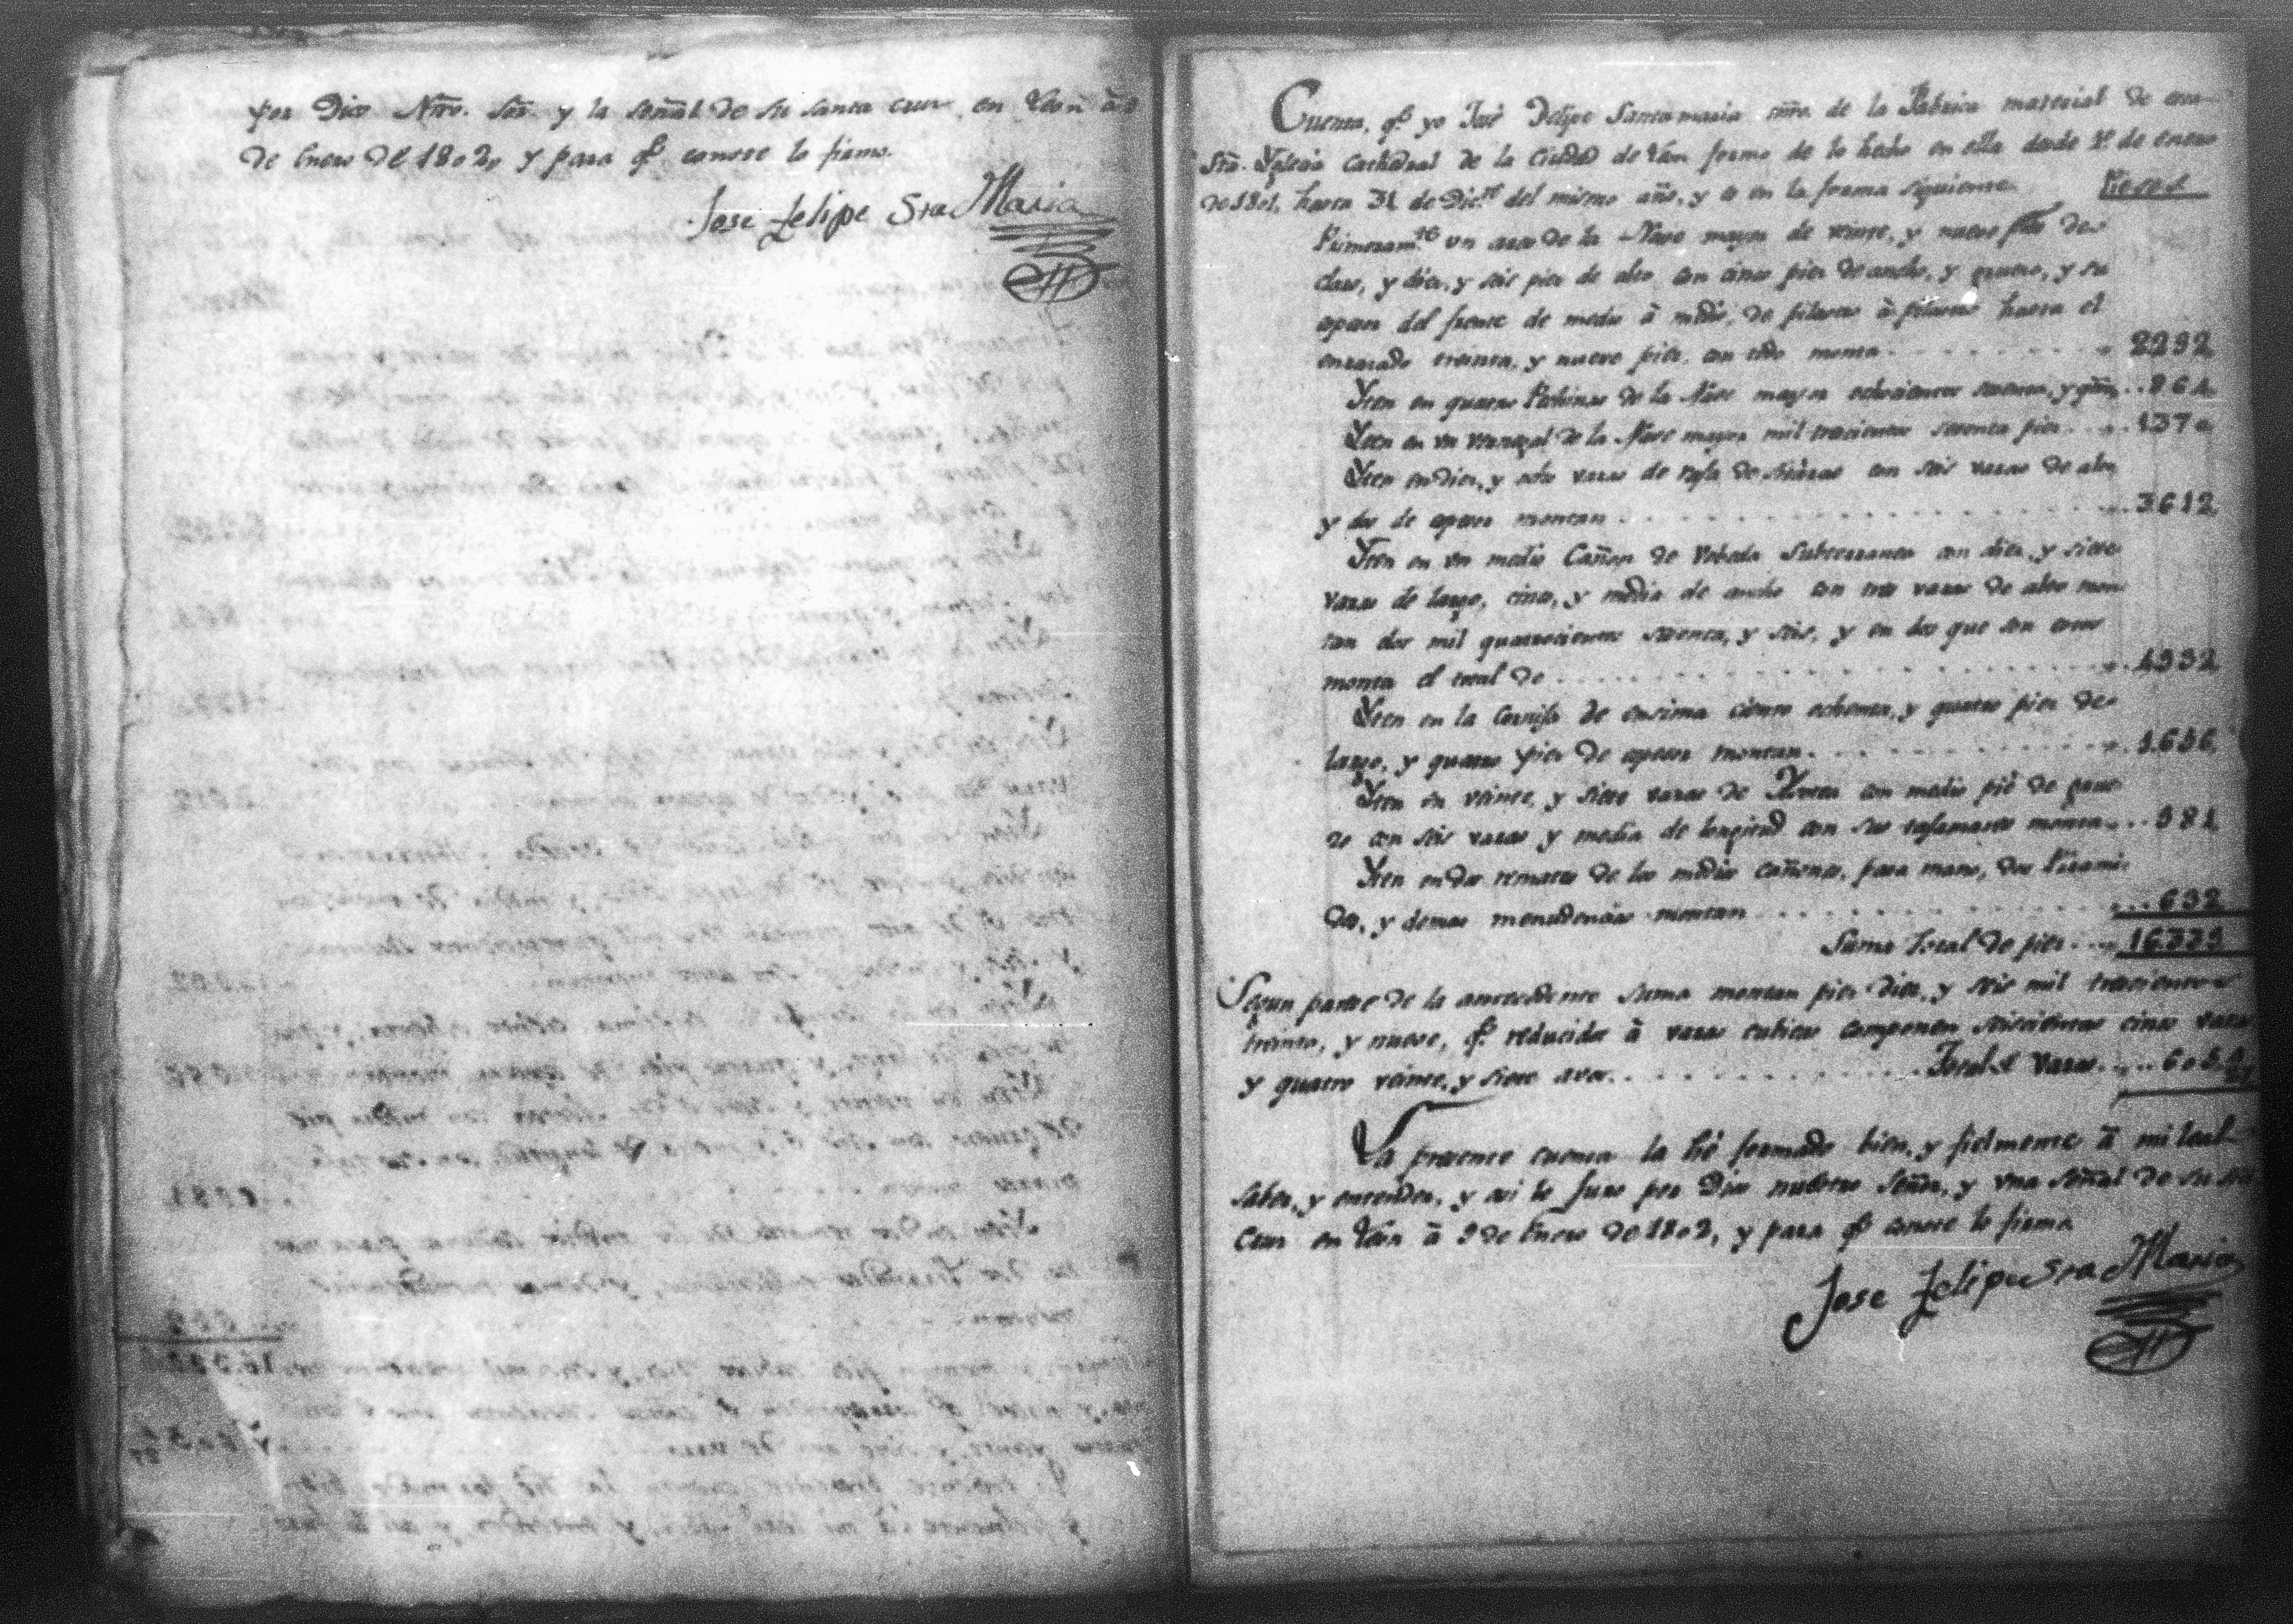 por Dios Ntro. Sr. y la señal de su santa cruz, en Leon à 9
de Enero de 1802, y para qe. conste lo firmo.
Jose Felipe Sta Maria
Cuenta, qe. yo José Felipe Santamaria mro. de la Fabrica material de esta
Sta. Yglesia Cathedral de la Ciudad de Leon formo de lo hecho en ella desde 1º de enero
de 1801, hasta 31 de Dicre. del mismo año, y es en la forma siguiente. Pies
Primeramte. un arco de la Nave mayor de veinte, y nueve pies de
claro, y diez, y seis pies de alto con cinco pies de ancho, y grueso, y su
espesor del frente de medio à medio, de pilares à pilares hasta el
enrazado treinta, y nueve pies, con todo monta 2292
Yten en quatro Pechinas de la Nave mayor ochocientos sesenta, y quatro 864
Yten en un Triangul de la Nave mayor mil trecientos setenta pies 1370
Yten en diez, y ocho varas de rafa de con seis varas de alto
y dos de espesor montan 3612
Yten en un medio Cañon de Vobeda Subterranea con diez, y siete
varas de largo, cinco, y media de ancho con tres varas de alto mon
tan dos mil quatrocientos sesenta, y seis, y en dos que son estos
monta el total de 4932
Yten en la Cornisa de encima ciento ochenta, y quatro pies de
largo, y quatro pies de espesor montan 1656
Yten en veinte, y siete varas de con medio pié de grue
so con seis varas y media de longitud con sus montan 981
Yten en dos remates de los medios cañones, pasa mano, dos Pirami
des, y demas menudencias montan 632
Suma Total de pies 16339
Segun parece de la antecedente suma montan pies diez, y seis mil trecientos
treinta, y nueve, qe. reducidos à varas cubicas componen seiscientas cinco varas
y quatro veinte, y siete avos. Total de Varas 605 4/27
La presente cuenta la hé formado bien, y fielmente à mi leal
saber, y entender, y asi lo juro por Dios nuestro Señor, y una señal de su sta
Cruz en Leon à 9 de Enero de 1802, y para qe. conste lo firmo
Jose Felipe Sta Maria